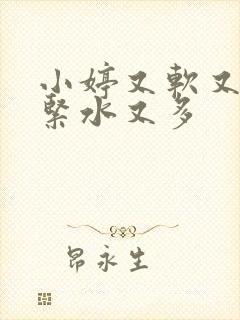 小婷又軟又
緊水又多
昂永生